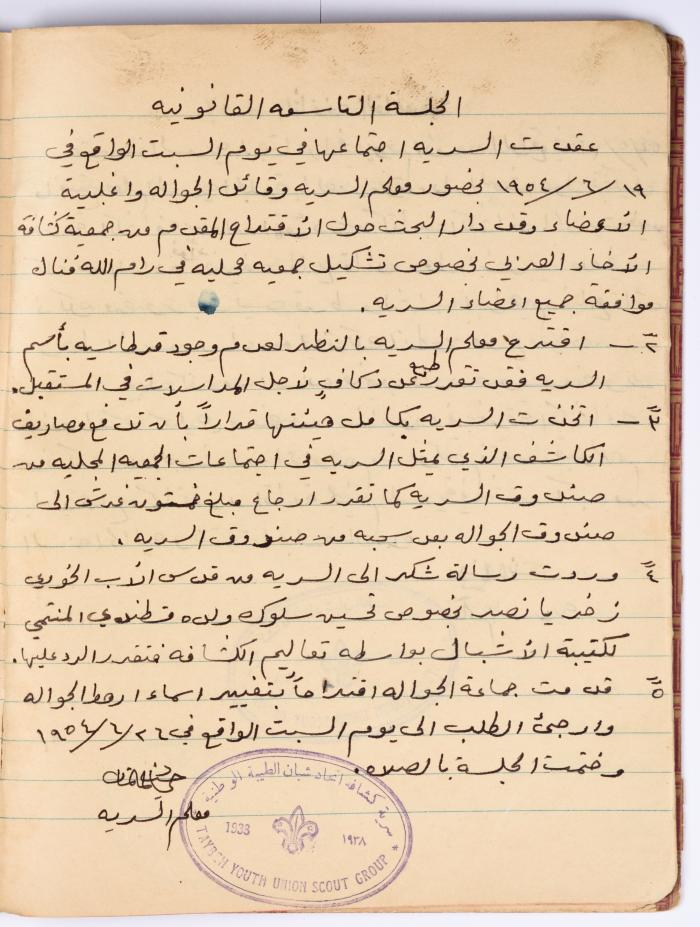 الجلسة التاسعه القانونيه
عقدت السريه اجتماعها في يوم السبت الواقع في
١٩ / ٦ / ١٩٥٤ بحضور معلم السريه وقائد الجواله واغلبية
الاعضاء وقد دار البحث حول الاقتراح المقدم من جمعية كشافة
الأخاء العربي بخصوص تشكيل جمعيه محليه في رام الله فنال
موافقة جميع اعضاء السريه .
٢ً – اقترح معلم السريه بالنظر لعدم وجود قرطاسيه بأسم
السريه فقد تقرر طبع كافٍ لأجل المراسلات في المستقبل .
٣ً – اتخذت السريه بكامل هيئتها قراراً بأن تدفع مصاريف
الكاشف الذي يمثل السريه في اجتماعات الجمعيه المحليه من
صندوق السريه كما تقرر ارجاع مبلغ غرش الى
صندوق الجواله بعد سحبه من صندوق السريه .
٤ً وردت رسالة شكر الى السريه من قدس الأب الخوري
بخصوص تحسين سلوك ولده قسطندي المنتمي
لكتيبة الأشبال بواسطه تعاليم الكشافه فتقرر الرد عليها .
٥ً قدمت جماعة الجواله اقتراحاً بتغيير اسماء ارهط الجواله
وارجئ الطلب الى يوم السبت الواقع في ٢٦ / ٦ / ١٩٥٤
وختمت الجلسة بالصلاه .
معلم السريه
سرية كشافة اتحاد شبان الطيبة الوطنية
1938 ١٩٣٨
TAYBEH YOUTH UNION SCOUT GROUP *